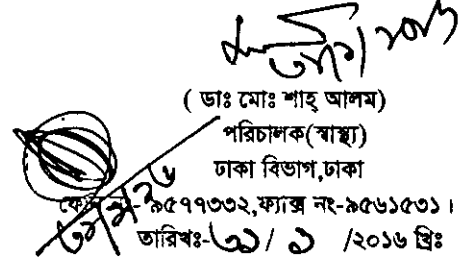 ( ডাঃ মোঃ শাহ্ আলম)
পরিচালক(স্বাস্থ্য)
ঢাকা বিভাগ,ঢাকা
নং- ৯৫৭৭৩৩২,ফ্যাক্স নং-৯৫৬১৫৩১।
তারিখঃ- /২০১৬ খ্রিঃ